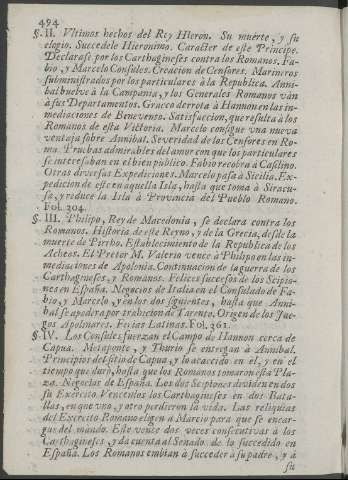 494
§. II. Vltimos hechos del Rey Hieron. Su muerte, y su
elogio. Succedele Hieronimo. Caracter de este Principe.
Declarase por los Carthagineses contra los Romanos. Fa-
bio, y Marcelo Consules. Creacion de Censores. Marineros
subministrados por los particulares à la Republica. Anni-
bal buelve à la Campania, y los Generales Romanos vàn
à sus Departamentos. Gracco derrota à Hannon en las in-
mediaciones de Benevento. Satisfaccion, que resulta à los
Romanos de esta Victoria. Marcelo consigue vna nueva
ventaja sobre Annibal. Severidad de los Censores en Ro-
ma. Pruebas admirables del amor con que los particulares
se interesaban en el bien publico. Fabio recobra à Casilino.
Otras diversas Expediciones. Marcelo passa à Sicilia. Ex-
pedicion de este en aquella Isla, hasta que toma à Siracu-
sa, y reduce la Isla à Provincia del Pueblo Romano.
Fol. 304.
§. III. Philipo, Rey de Macedonia, se declara contra los
Romanos. Historia de este Reyno, y de la Grecia, desde la
muerte de Pirrho. Establecimiento de la Republica de los
Acheos. El Pretor M. Valerio vence à Philipo en las in-
mediaciones de Apolonia. Continuacion de la guerra de los
Carthagineses, y Romanos. Felices sucesos de los Scipio-
nes en España. Negocios de Italia en el Consulado de Fa-
bio, y Marcelo, y en los dos siguientes, hasta que Anni-
bal se apodera por trahicion de Tarento. Origen de los Jue-
gos Apolinares. Ferias Latinas. Fol. 361.
§. IV. Los Consules fuerzan el Campo de Hannon cerca de
Capua. Metaponte, y Thurio se entregan à Annibal.
Principios del sitio de Capua, y lo acaecido en el, y en el
tiempo que durò, hasta que los Romanos tomaron esta Pla-
za. Negocios de España. Los dos Scipiones dividen en dos
su Exèrcito. Vencenlos los Carthagineses en dos Bata-
llas, en que vno, y otro perdieron la vida. Las reliquias
del Exercito Romano eligen à Marcio para que se encar-
gue del mando. Este vence dos veces consecutivas à los
Carthagineses, y dà cuenta al Senado de lo succedido en
España. Los Romanos embian à succeder à su padre, y à
su